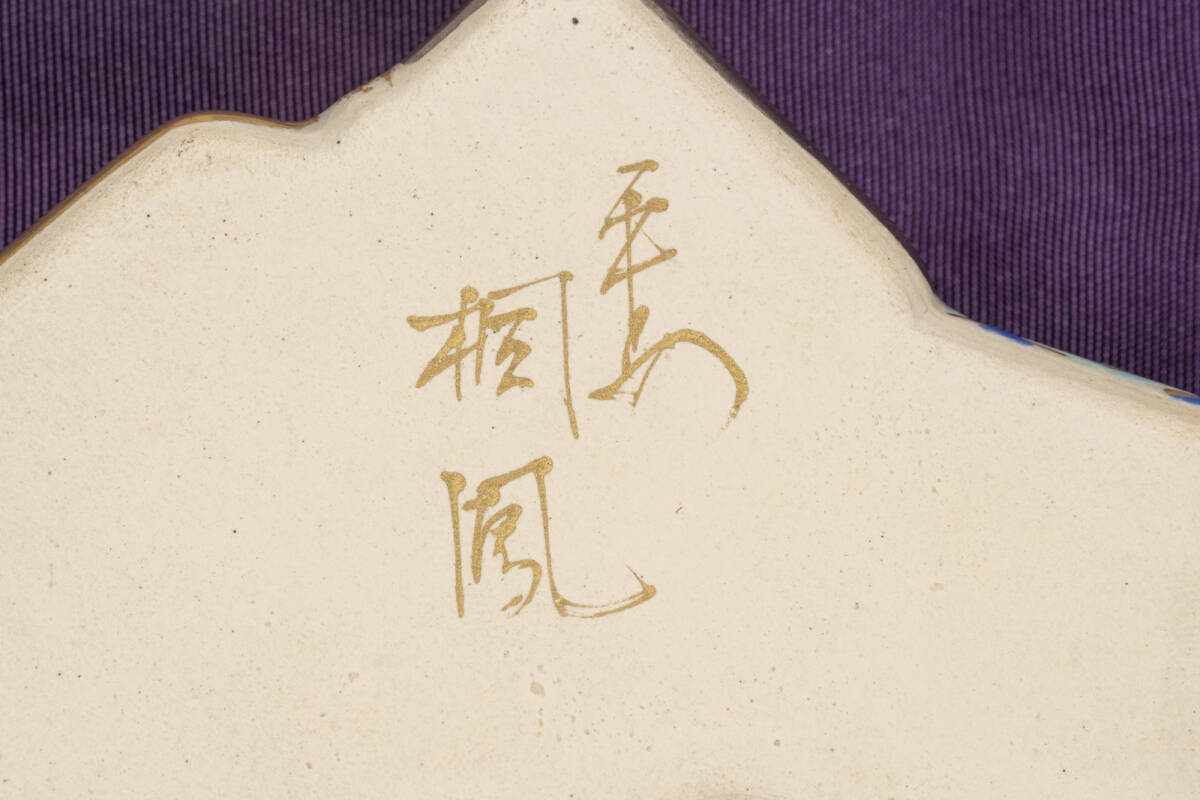 平安
桐鳳